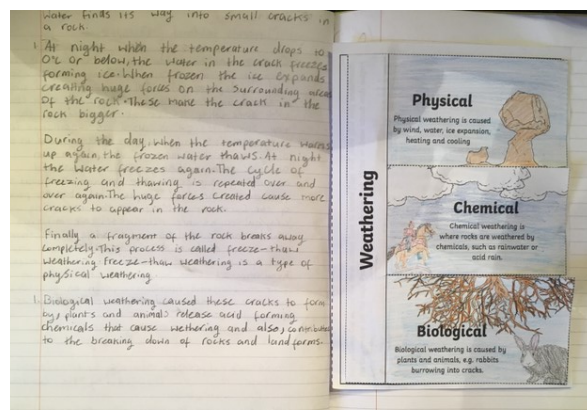 water finds its way into small cracks in
a rock.
At night when the temperature drops to
0°c or below, the water in the crack freezes
forming ice. When frozen the ice expands
creating huge forces on the surrounding areas
of the rock. These make the crack in the
rock bigger.
During the day, when the temperature warms
up again, the frozen water thaws. At night
the water freezes again. The cycle of
freezing and thawing is repeated over and
over again. The huge forces created cause more
cracks to appear in the rock.
Finally a fragment of the rock breaks away
completely. This process is called freeze-thaw
weathering. Freeze-thaw weathering is a type of
physical weathering
1. Biological weathering caused these cracks to form
by, plants and animals release acid forming
chemicals that cause wethering and also, contribute
to the breaking down of rocks and landforms.
Weathering
Physical
Physical weathering is caused
by wind, water, ice expansion,
heating and cooling
Chemical
Chemical weathering is
where rocks are weathered by
chemicals, such as rainwater or
acid rain.
Biological
Biological weathering is caused by
plants and animals, e.g. rabbits
burrowing into cracks.